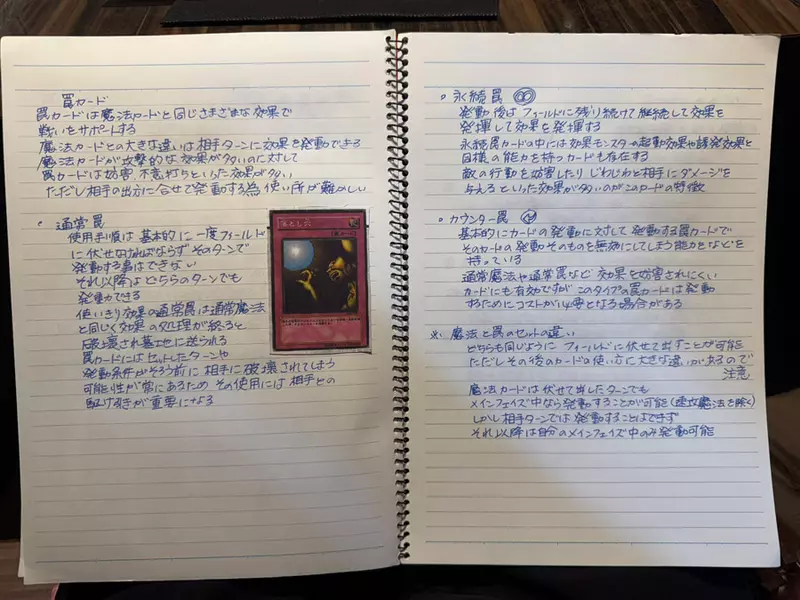 罠カード
罠カードは魔法カードと同じさまざまな効果で
戦いをサポートする
魔法カードとの大きな違いは相手ターンに効果を発動できる
魔法カードが攻撃的な効果が多いのに対して
罠カードは妨害 不意打ちといった効果が多い
ただし相手の出方に合せて発動する為 使い所が難かしい
・ 通常罠
使用手順は基本的に一度フィールド
に伏せなければならず そのターンで
発動する事はできない
それ以降はどちらのターンでも
発動できる
使いきり効果の通常罠は通常魔法
と同じく効果の処理が終ると
破壊され墓地に送られる
罠カードにはセットしたターンや
発動条件がそろう前に相手に破壊されてしまう
可能性が常にあるため その使用には相手との
駆け引きが重要になる
落とし穴
・ 永続罠
発動後はフィールドに残り続けて継続して効果を
発揮して効果を発揮する
永続罠カードの中には効果モンスターの起動効果や誘発効果と
同様の能力を持つカードも存在する
敵の行動を妨害したり じわじわと相手にダメージを
与えるといった効果が多いのがこのカードの特徴
・ カウンター罠
基本的にカードの発動に対して発動する罠カードで
そのカードの発動そのものを無効にしてしまう能力をなどを
持っている
通常魔法や通常罠など 効果を妨害されにくい
カードにも有効ですが このタイプの罠カードは発動
するためにコストが必要となる場合がある
※ 魔法と罠のセットの違い
どちらも同じように フィールドに伏せて出すことが可能
ただしその後のカードの使い方に大きな違いがあるので
注意
魔法カードは伏せて出したターンでも
メインフェイズ中なら発動することが可能(速攻魔法を除く)
しかし相手ターンでは発動することはできず
それ以降は自分のメインフェイズ中のみ発動可能